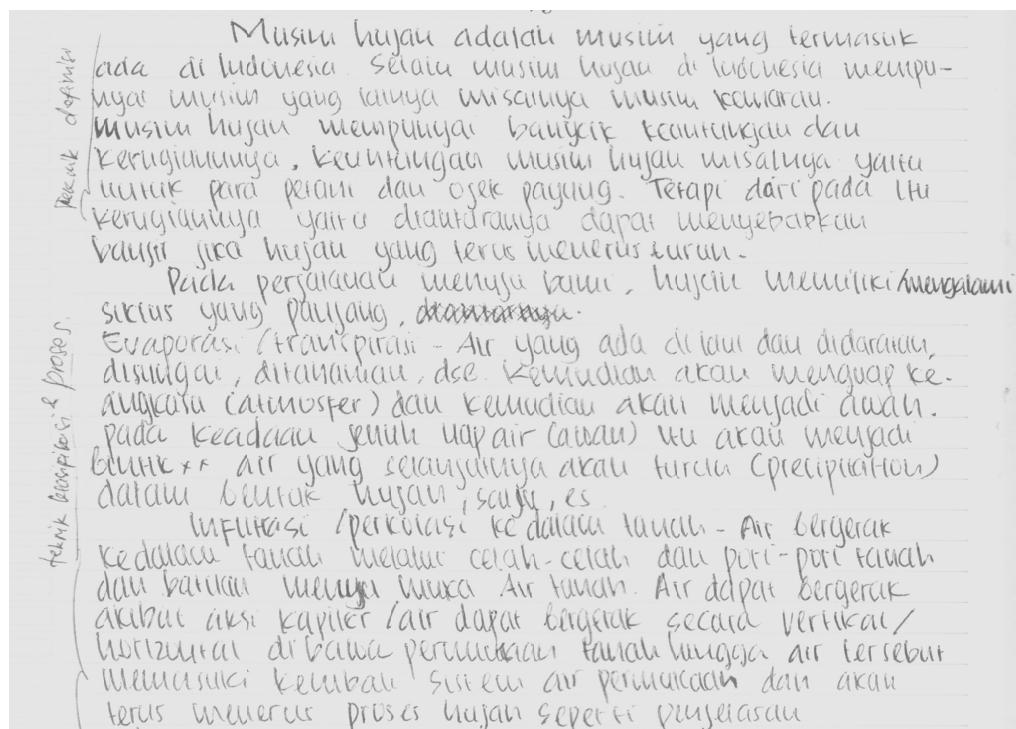 Musim hujan adalah musim yang termasuk
ada di Indonesia. Selain musim hujan di Indonesia mempu-
nyai musim yang lainya misalnya musim kemarau.
Musim hujan mempunyai banyak keuntungan dan
kerugiannya, keuntungan musim hujan misalnya yaitu
untuk para petani dan ojek payung. Tetapi dari pada itu
kerugiannya yaitu diantaranya dapat menyebabkan
banjir jika hujan yang terus menerus turun.
Pada perjalanan menuju bumi, hujan memiliki/mengalami
siklus yang panjang,
Evaporasi/transpirasi - Air yang ada di laut dan didaratan,
disungai, ditanaman, dsb. Kemudian akan menguap ke-
angkasa (atmosfer) dan kemudian akan menjadi awan.
pada keadaan jenuh uap air (awan) itu akan menjadi
bintik** air yang selanjutnya akan turun (precipitation)
dalam bentuk hujan, salju, es
Infiltrasi/perkolasi ke dalam tanah - Air bergerak
kedalam tanah melalui celah-celah dan pori-pori tanah
dan batuan menuju muka Air tanah. Air dapat bergerak
akibat aksi kapiler/air dapat bergerak secara vertikal/
horizontal dibawa permukaan tanah hingga air tersebut
memasuki kembali sistem air permukaan dan akan
terus menerus proses hujan seperti penjelasan
teknik definisi
teknik klasifikasi & proses.